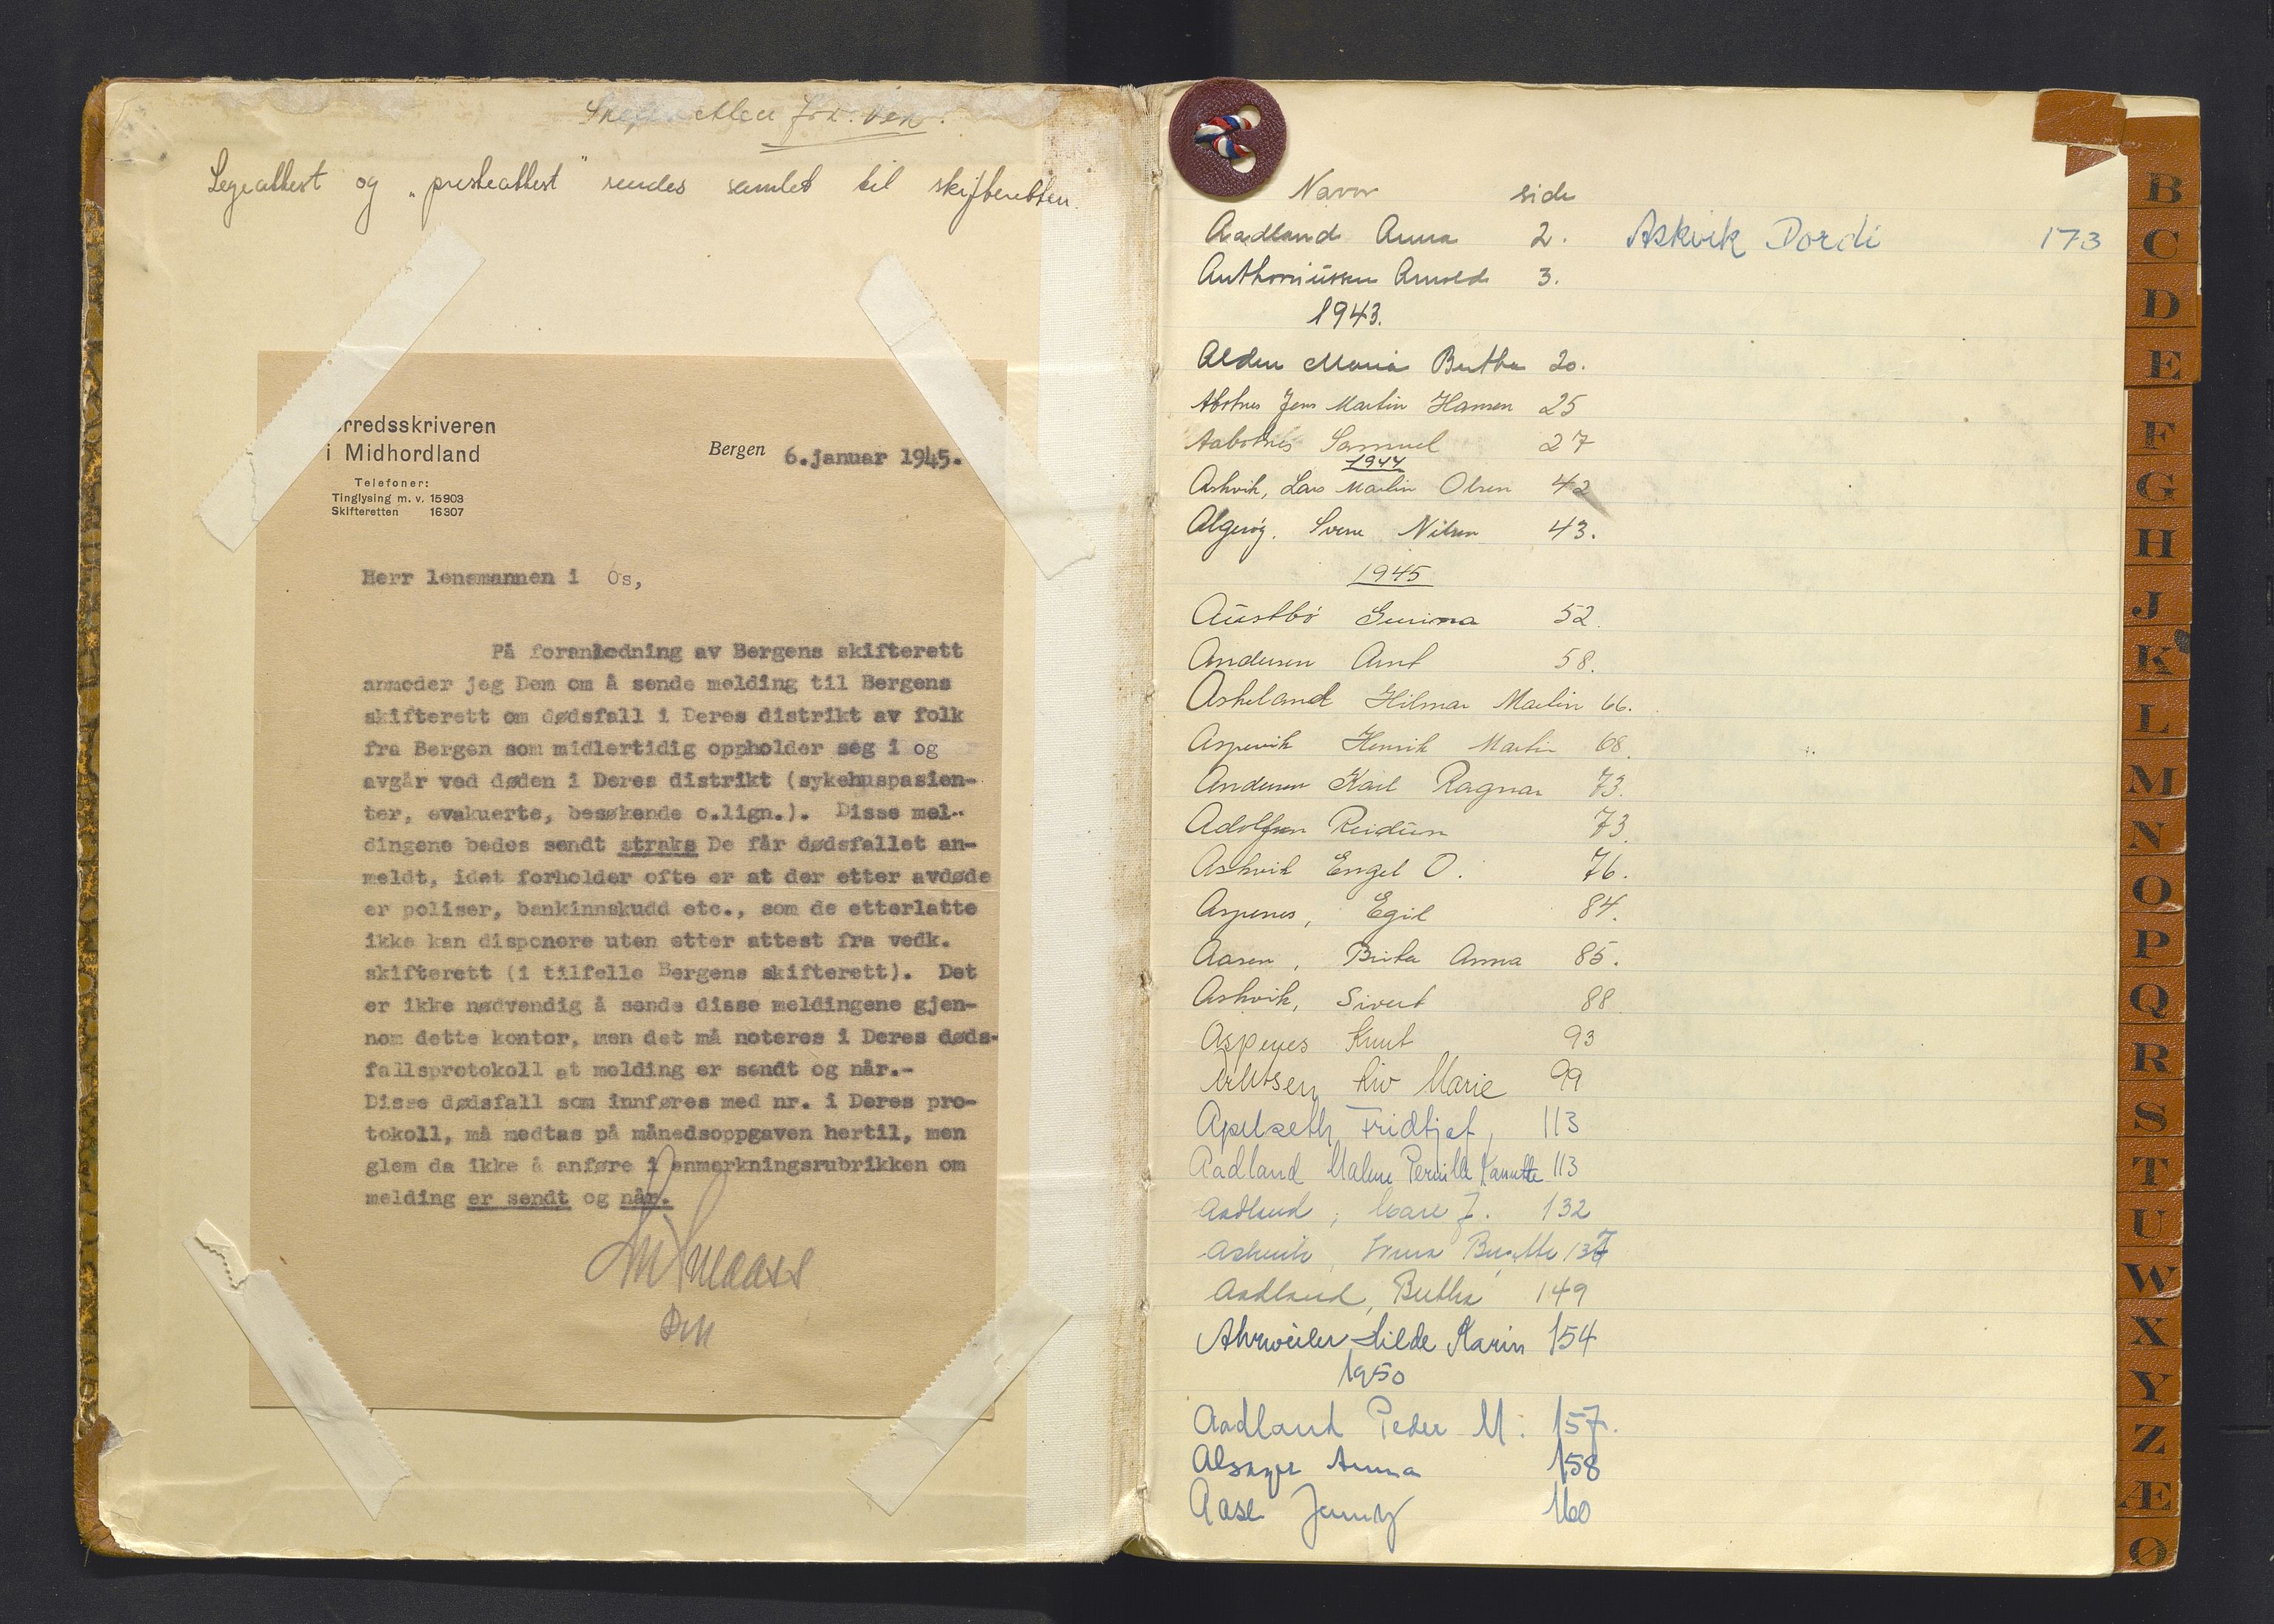 Legeattest og "presteattest" sendes samlet til skifteretten.
Herredsskriveren
i Midhordland
Telefoner:
Tinglysing m. v. 15903
Skifteretten 16307
Bergen 6.januar 1945.
Herr lensmannen i Os,
På foranledning av Bergens skifterett
anmoder jeg Dem om å sende melding til Bergens
skifterett om dødsfall i Deres distrikt av folk
fra Bergen som midlertidig oppholder seg i og
avgår ved døden i Deres distrikt (sykehuspasien-
ter, evakuerte, besøkende o.lign.). Disse mel-
dingene bedes sendt straks De får dødsfallet an-
meldt, idet forholder ofte er at der etter avdøde
er poliser, bankinnskudd etc., som de etterlatte
ikke kan disponere uten etter attest fra vedk.
skifterett (i tilfelle Bergens skifterett). Det
er ikke nødvendig å sende disse meldingene gjen-
nom dette kontor, men det må noteres i Deres døds-
fallsprotokoll at melding er sendt og når.-
Disse dødsfall som innføres med nr. i Deres pro-
tokoll, må medtas på månedsoppgaven hertil, men
glem da ikke å anføre i anmerkningsrubrikken om
melding er sendt og når.
Navn side
Aadland Anna 2. Askvik Dordi 173
Anthoniussen Arnold 3.
1943.
Alden Maria Berthe 20.
Abotnes Jens Martin Hansen 25
Aabotnes Samuel 27
1944
Askvik, Lars Martin Olsen 42
Algerøy. Sverre Nilsen 43.
1945
Austbø Gurina 52.
Andersen Arnt 58.
Askeland Hilmar Martin 66.
Aspevik Henrik Martin 68.
Andersen Karl Ragnar 73.
Adolfsen Reidun 73.
Askvik Engel O. 76.
Aspenes, Egil 84.
Aasen, Berta Anna 85.
Askvik, Sivert 88
Aspenes Knut 93
Liv Marie 99
Apelseth Fridtjof, 113
Aadland Malene Pernille Kanutte 113
Aadland, J. 132
Askvik, 137
Aadland, Bertha 149
Ahrweiler Hilde Karin 154
1950
Aadland Peder M. 157.
Anna 158
Aase Jenny 160
B
C
D
E
F
G
H
J
K
L
M
N
O
P
Q
R
S
T
U
W
X
Y
Z
Æ
Ø